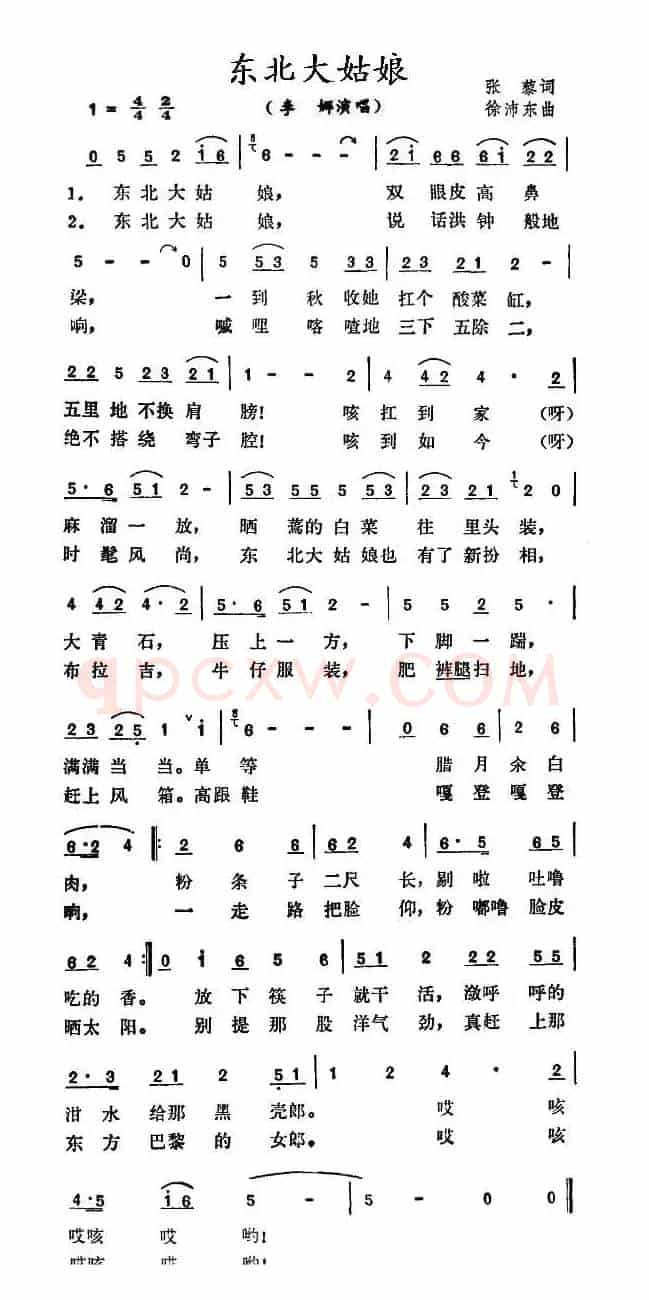 东北大姑娘
张藜词
1 = 4/4 2/4 (李娜演唱) 徐沛东曲
0 5 5 2 i 6 | 6 - - - | 2 i 6 6 6 i 2 2 |
1. 东北大姑 娘, 双眼皮高鼻
2. 东北大姑 娘, 说话洪钟般地
5 - - 0 | 5 5 3 5 3 5 | 2 3 2 1 2 - |
梁, 一到秋收她扛个酸菜缸,
响, 喊哩喀喳地三下五除二,
2 2 5 2 3 2 1 | 1 - - 2 | 4 4 2 4 · 2 |
五里地不换肩膀! 咳扛到家(呀)
绝不搭绕弯子腔! 咳到如今(呀)
5 · 6 5 1 2 - | 5 3 5 5 5 5 3 | 2 3 2 1 2 0 |
麻溜一放, 晒蔫的白菜往里头装,
时髦风尚, 东北大姑娘也有了新扮相,
4 4 2 4 · 2 | 5 · 6 5 1 2 - | 5 5 2 5 · |
大青石, 压上一方, 下脚一踹,
布拉吉, 牛仔服装, 肥裤腿扫地,
qpcxw.COM
2 3 2 5 1 i | 6 - - - | 0 6 6 2 6 |
满满当当。单等 腊月氽白
赶上风箱。高跟鞋 嘎登嘎登
6 · 2 4 |: 2 6 6 6 4 | 6 · 5 6 5 |
肉, 粉条子二尺长, 剔啦吐噜
响, 一走路把脸仰, 粉嘟噜脸皮
6 2 4 :| 0 i 6 5 6 | 5 1 2 2 2 5 5 |
吃的香。放下筷子就干活, 潋呼呼的
晒太阳。别提那股洋气劲, 真赶上那
2 · 3 2 1 2 5 1 | 1 2 4 · 2 |
泔水给那黑壳郎。 哎咳
东方巴黎的女郎。 哎咳
4 · 5 i 6 5 - | 5 - 0 0 ‖
哎咳哎哟!
哎咳哎哟!